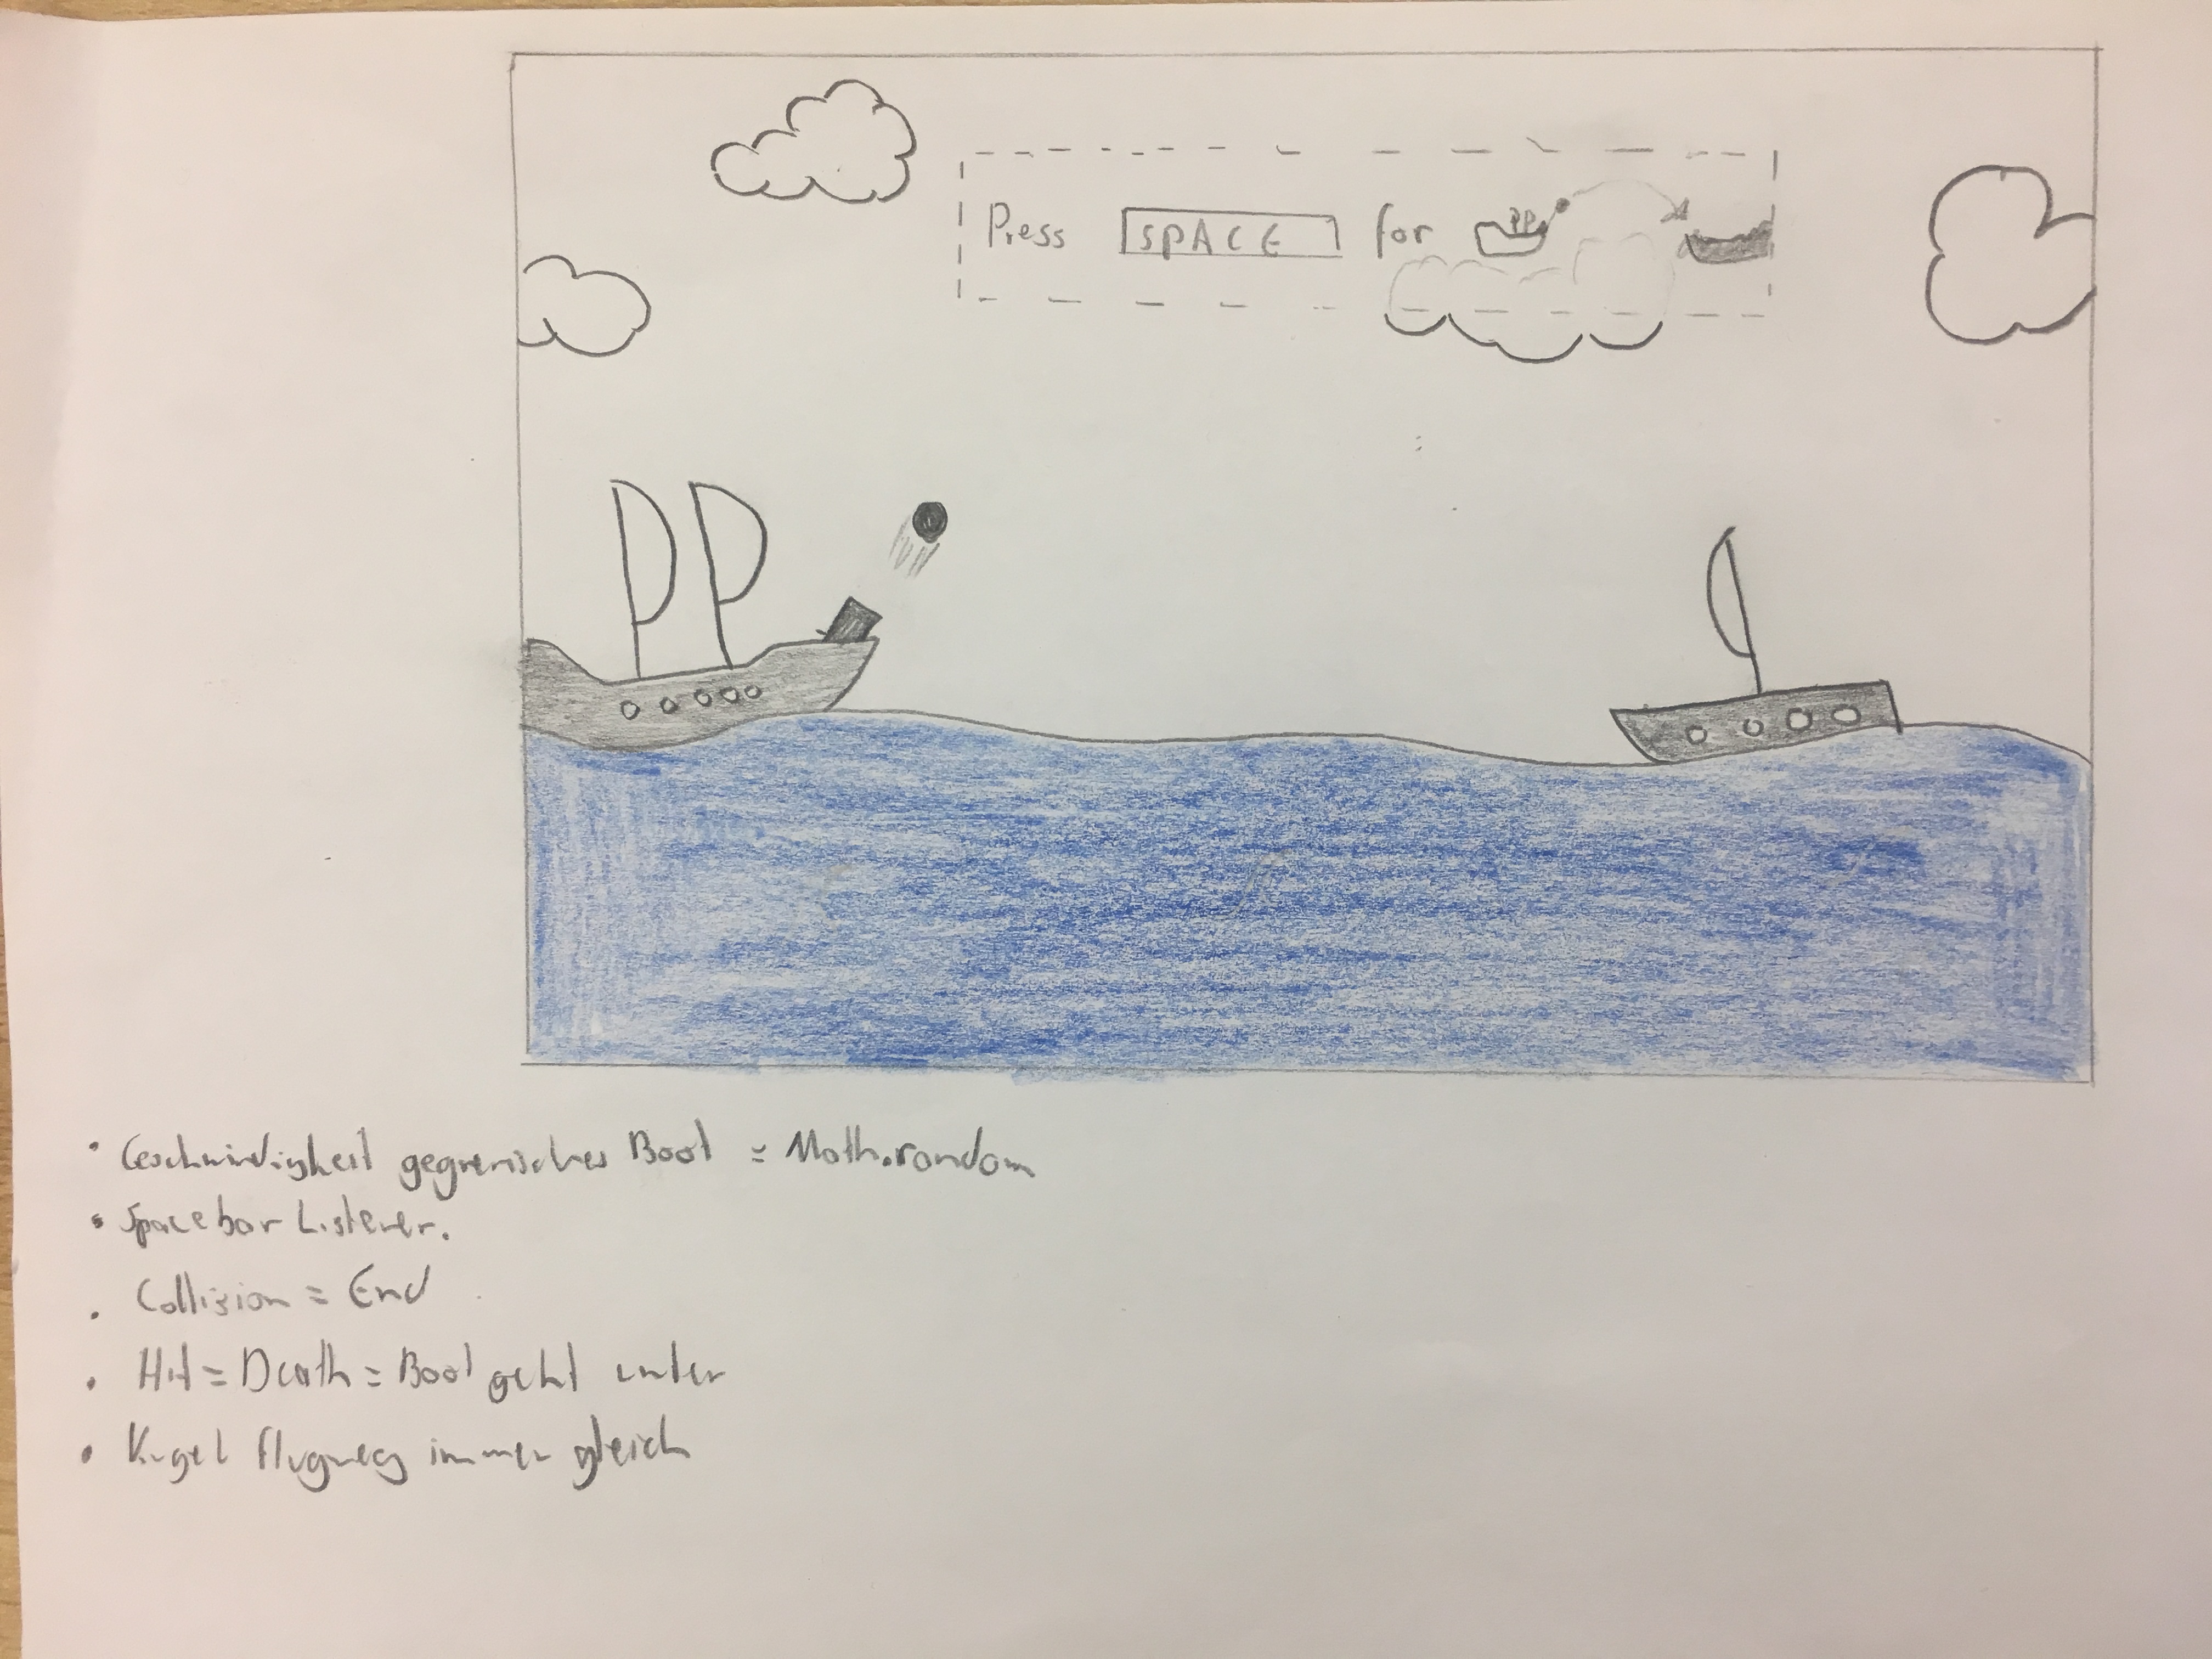 Press SPACE for
• Geschwindigkeit gegnerisches Boot = Math.random
• Spacebar Listener.
• Collision = End
• Hit = Death = Boot geht unter
• Kugel flugweg immer gleich